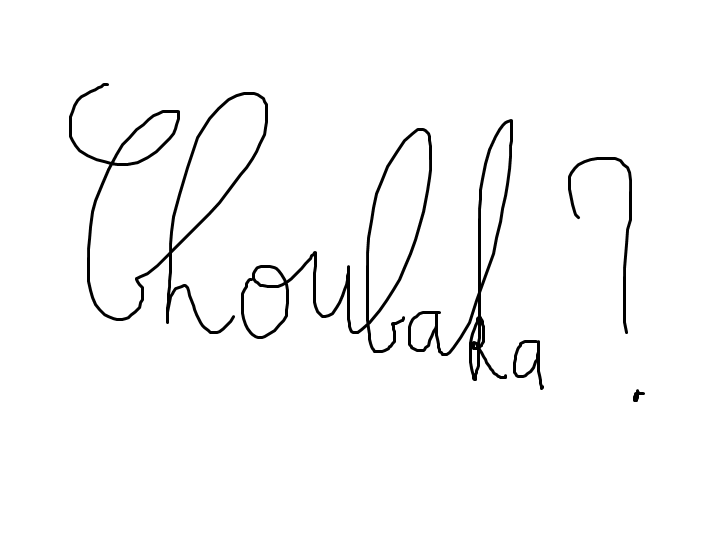 Choubaka ?